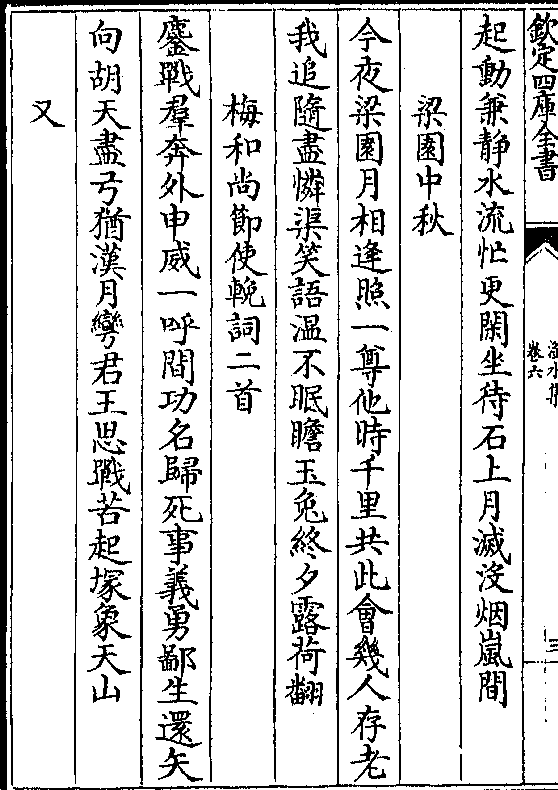 欽定四庫全書
卷六
三
起動兼靜水流忙更閑坐待石上月滅没烟嵐間
梁園中秋
今夜梁園月相逢照一尊他時千里共此會幾人存老
我追隨盡憐渠笑語温不眠瞻玉兔終夕露荷翻
梅和尚節使輓詞二首
鏖戰羣奔外申威一呼間功名歸死事義勇鄙生還矢
向胡天盡弓猶漢月彎君王思戰苦起塚象天山
又